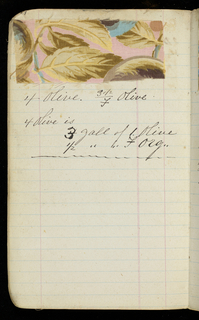 4 Olive. 3/4 F Olive
4 Olive is
3 gall of 1 Olive
1/2 " " F Org.